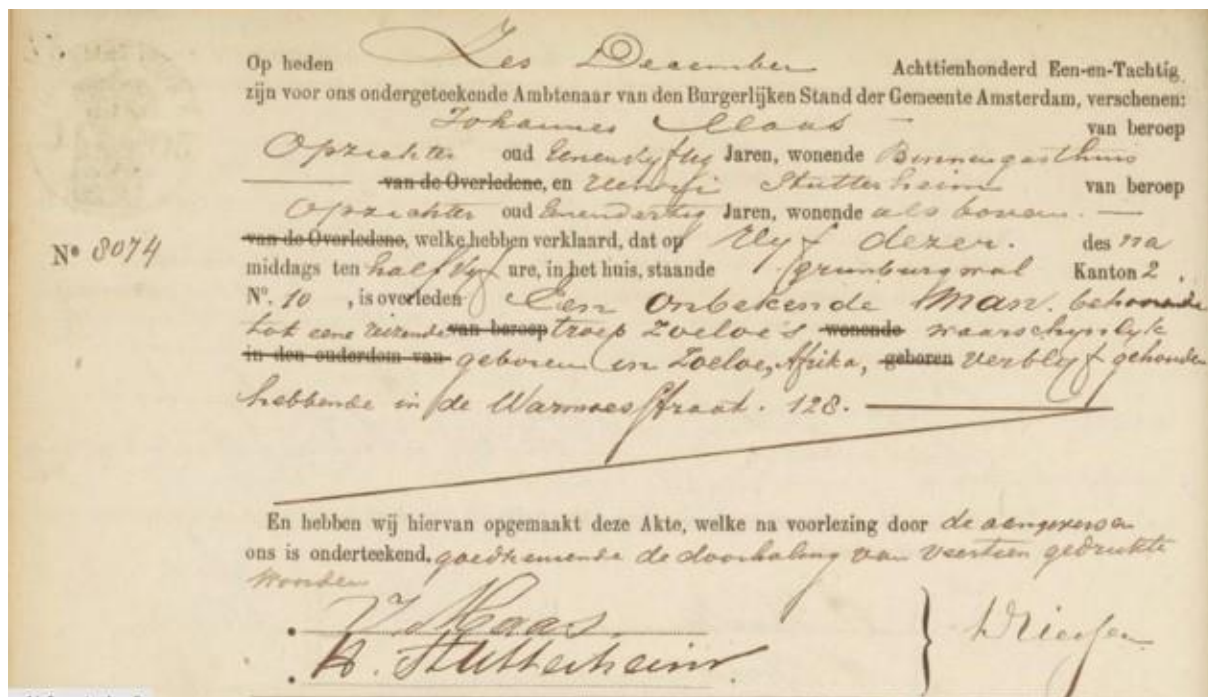 Op heden Zes December Achttienhonderd Een-en-Tachtig
zijn voor ons ondergeteekende Ambtenaar van den Burgerlijken Stand der Gemeente Amsterdam, verschenen:
Johannes Maas van beroep
Opzichter oud Eenenvyftig Jaren, wonende Binnengasthuis
van de Overledene, en Stutterheim van beroep
Opzichter oud Eenendertig Jaren, wonende als boven.
van de Overledene, welke hebben verklaard, dat op Vyf dezer. des na
Nº 8074
middags ten half vyf ure, in het huis, staande Grimburgwal Kanton 2,
Nº. 10, is overleden Een onbekende Man. behoorende
tot eene reizende van beroep troep Zoeloe's wonende waarschynlyk
in den ouderdom van geboren in Zoeloe, Afrika, geboren verblyf gehouden
hebbende in de Warmoesstraat. 128.
En hebben wij hiervan opgemaakt deze Akte, welke na voorlezing door de aangevers en
ons is onderteekend, goedkeurende de doorhaling van veertien gedrukte
woorden
J Maas
H. Stutterheim